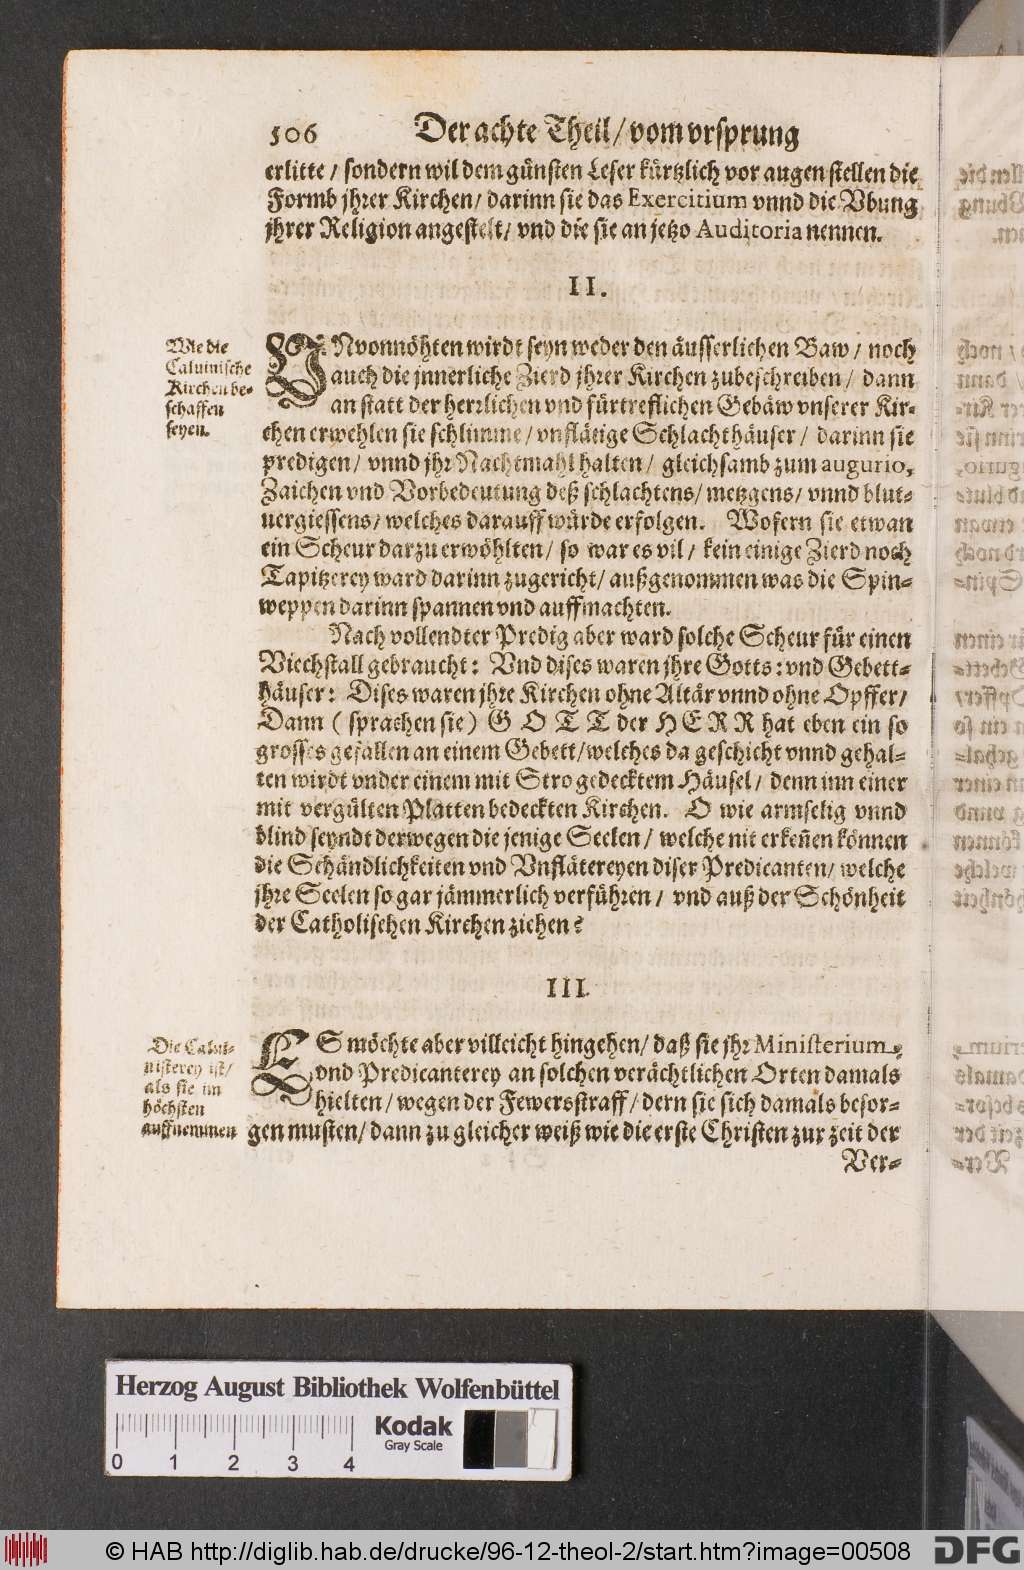 506 Der achte Theil / vom vrsprung
erlitte / sondern wil dem günsten Leser kürtzlich vor augen stellen die
Formb jhrer Kirchen / darinn sie das Exercitium vnnd die Vbung
jhrer Religion angestelt / vnd die sie an jetzo Auditoria nennen.
II.
Wie die
Caluinische
Kirchen be-
schaffen
seyen.
VNvonnöhten wirdt seyn weder den äusserlichen Baw / noch
auch die jnnerliche Zierd jhrer Kirchen zubeschreiben / dann
an statt der herrlichen vnd fürtreflichen Gebäw vnserer Kir-
chen erwehlen sie schlimme / vnflätige Schlachthäuser / darinn sie
predigen / vnnd jhr Nachtmahl halten / gleichsamb zum augurio,
Zaichen vnd Vorbedeutung deß schlachtens / metzgens / vnnd blut-
uergiessens / welches darauff würde erfolgen. Wofern sie etwan
ein Scheur darzu erwöhlten / so war es vil / kein einige Zierd noch
Tapitzerey ward darinn zugericht / außgenommen was die Spin-
weppen darinn spannen vnd auffmachten.
Nach vollendter Predig aber ward solche Scheur für einen
Viechstall gebraucht: Vnd dises waren jhre Gotts: vnd Gebett-
häuser: Dises waren jhre Kirchen ohne Altär vnnd ohne Opffer /
Dann ( sprachen sie ) G O T T der H E R R hat eben ein so
grosses gefallen an einem Gebett / welches da geschicht vnnd gehal-
ten wirdt vnder einem mit Stro gedecktem Häusel / denn inn einer
mit vergülten Platten bedeckten Kirchen. O wie armselig vnnd
blind seyndt derwegen die jenige Seelen / welche nit erkeñen können
die Schändlichkeiten vnd Vnflätereyen diser Predicanten / welche
jhre Seelen so gar jämmerlich verführen / vnd auß der Schönheit
der Catholischen Kirchen ziehen?
III.
Die Calui-
nisterey ist /
als sie im
höchsten
auffnemmen
ES möchte aber villeicht hingehen / daß sie jhr Ministerium,
vnd Predicanterey an solchen verächtlichen Orten damals
hielten / wegen der Fewersstraff / dern sie sich damals besor-
gen musten / dann zu gleicher weiß wie die erste Christen zur zeit der
Ver-
Herzog August Bibliothek Wolfenbüttel
Kodak
Gray Scale
0 1 2 3 4
© HAB http://diglib.hab.de/drucke/96-12-theol-2/start.htm?image=00508
DFG